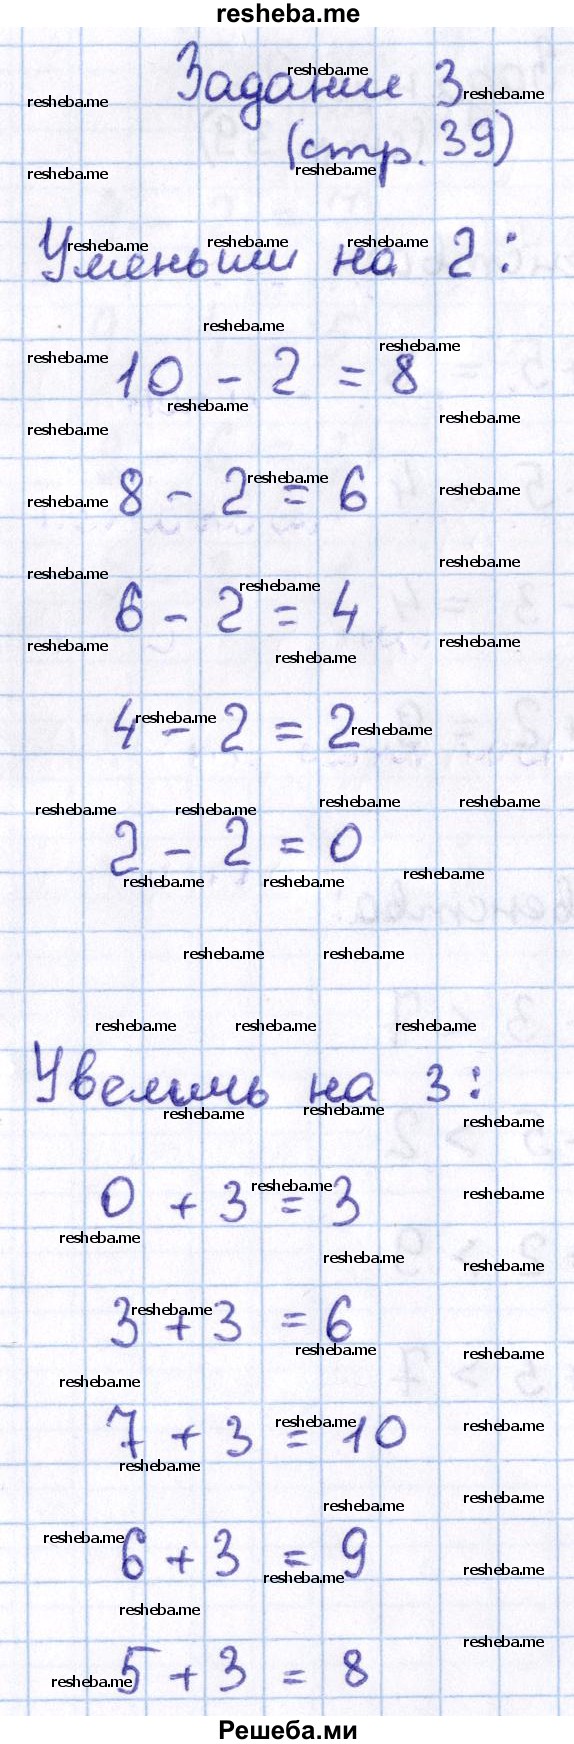 resheba.me
Задание 3
(стр. 39)
Уменьши на 2:
10 - 2 = 8
8 - 2 = 6
6 - 2 = 4
4 - 2 = 2
2 - 2 = 0
Увеличь на 3:
0 + 3 = 3
3 + 3 = 6
7 + 3 = 10
6 + 3 = 9
5 + 3 = 8
Решеба.ми